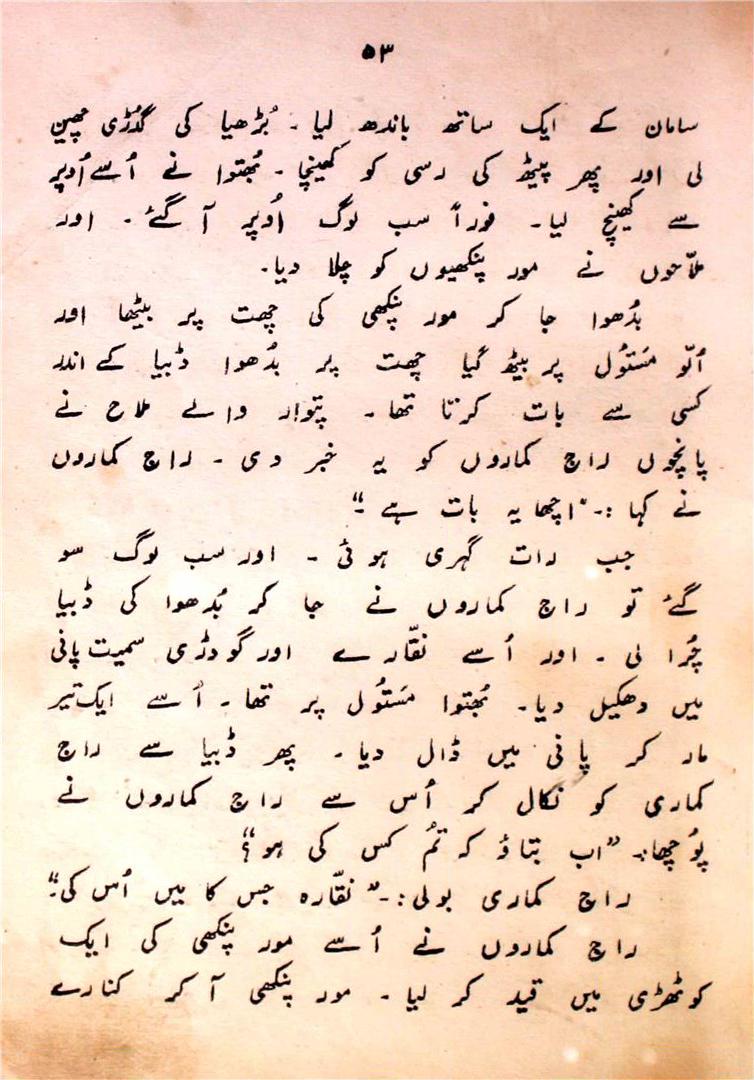 ۵۳
سامان کے ایک ساتھ باندھ لیا ۔ بُڑھیا کی گدُڑی چھین
لی اور پھر پیٹھ کی رسی کو کھینچا ۔ بُھتوا نے اُسے اُوپر
سے کھینچ لیا۔ فوراً سب لوگ اُوپر آ گئے ۔ اور
ملاّحوں نے مور پنکھیوں کو چلا دیا۔
بُدھوا جا کر مور پنکھی کی چھت پر بیٹھا اور
اُلّو مَستُول پر بیٹھ گیا چھت پر بدُھوا ڈبیا کے اندر
کسی سے بات کرتا تھا ۔ پتوار والے ملاح نے
پانچوں راج کماروں کو یہ خبر دی ۔ راج کماروں
نے کہا :۔ "اچھا یہ بات ہے ۔"
جب رات گہری ہوئی ۔ اور سب لوگ سو
گئے تو راج کماروں نے جا کر بُدھوا کی ڈبیا
چُرا لی ۔ اور اُسے نقّارے اور گودڑی سمیت پانی
میں دھکیل دیا۔ بُھتوا مَستُول پر تھا ۔ اُسے ایک تیر
مار کر پانی میں ڈال دیا ۔ پھر ڈبیا سے راج
کماری کو نکال کر اُس سے راج کماروں نے
پوُچھا:۔ "اب بتاؤ کہ تمُ کس کی ہو"؟
راج کماری بولی :۔" نقّارہ جس کا میں اُس کی۔"
راج کماروں نے اُسے مور پنکھی کی ایک
کوٹھڑی میں قید کر لیا ۔ مور پنکھی آ کر کنارے